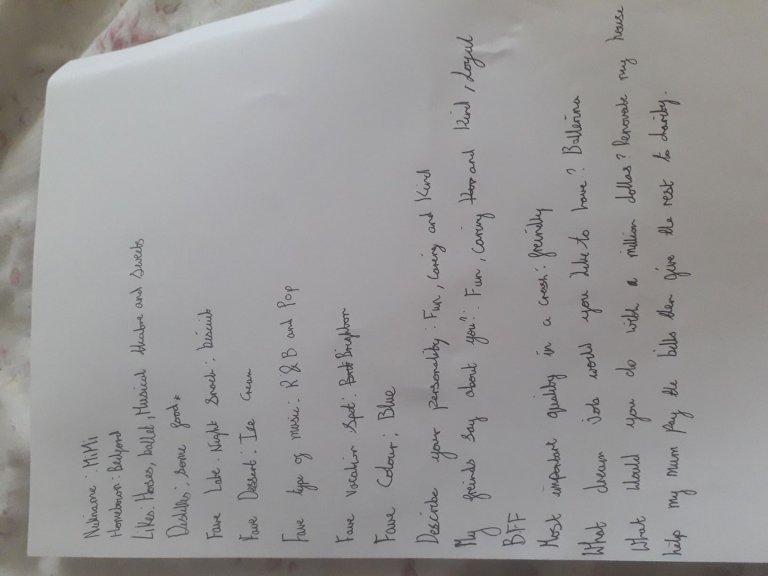 Nickname: MiMi
Hometown: Bedford
Likes: Horses, ballet, Musical theatre and sweets
Dislikes: some food
Fave Late Night Snack: biscuit
Fave Dessert: Ice Cream
Fave type of music: R & B and Pop
Fave Vacation Spot: Brighton
Fave Colour: Blue
Describe your personality: Fun, caring and Kind
My friends say about you?: Fun, caring and kind, Loyal
BFF
Most important quality in a crush: freindly
What dream Job would you like to have? Ballerina
What would you do with a million dollas? Renovate my house
help my mum pay the bills then give the rest to charity.